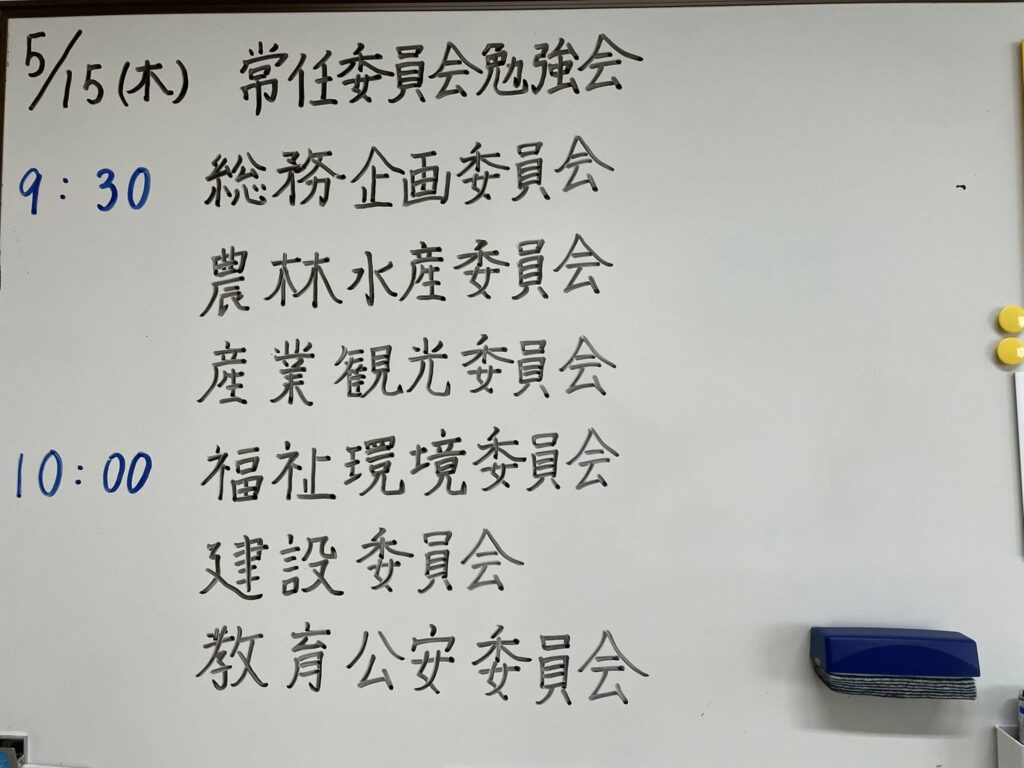 5/15(木) 常任委員会勉強会
9:30 総務企画委員会
農林水産委員会
産業観光委員会
10:00 福祉環境委員会
建設委員会
教育公安委員会